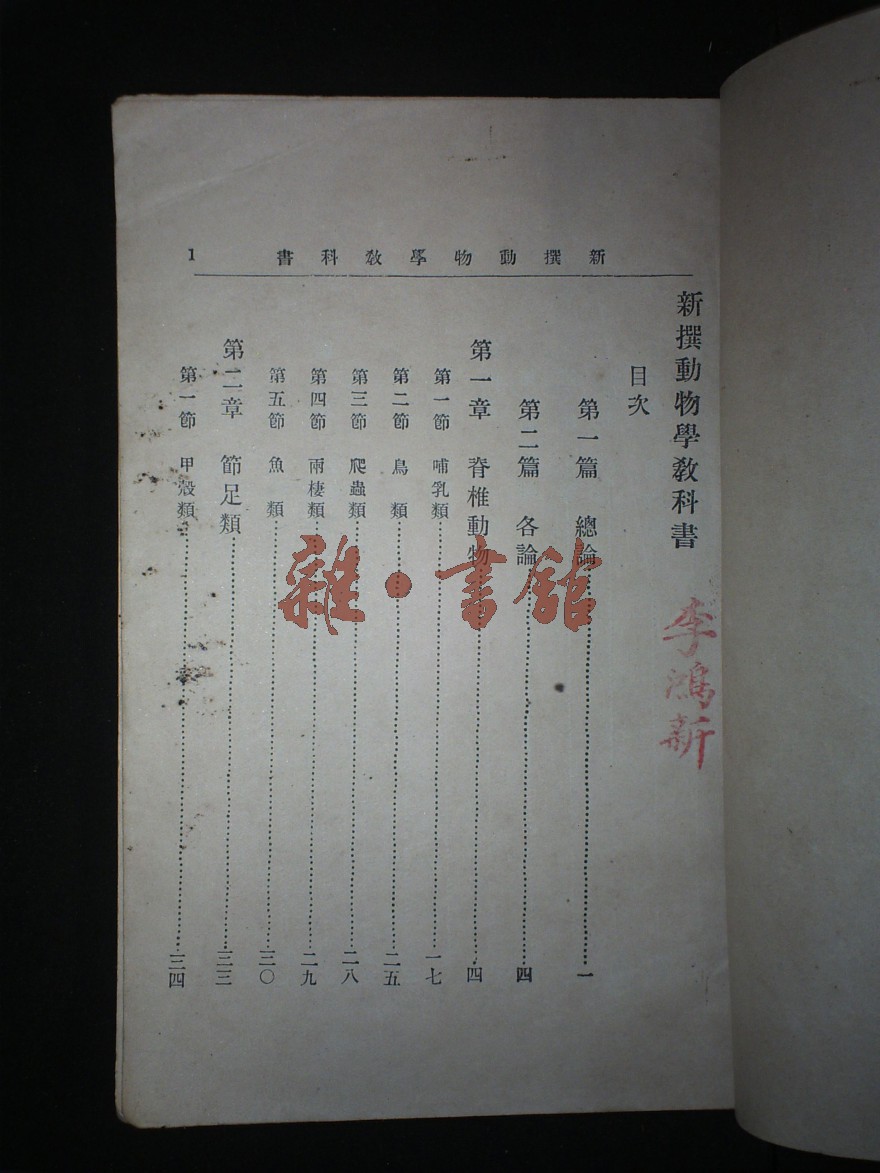 1
新撰動物學教科書
新撰動物學教科書
目次
第一篇 總論 一
第二篇 各論 四
第一章 脊椎動物 四
第一節 哺乳類 一七
第二節 鳥類 二五
第三節 爬蟲類 二八
第四節 兩棲類 二九
第五節 魚類 三〇
第二章 節足類 三三
第一節 甲殼類 三四
李鴻新
雜·書館